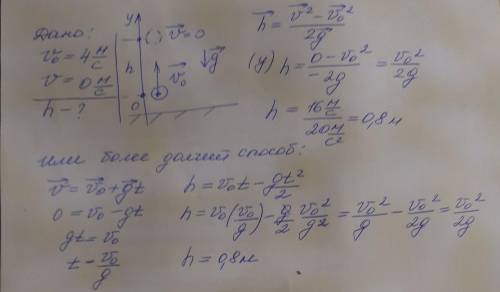 Дано:
v⃗₀ = 4 м/с
v = 0 м/с
h - ?
y
v⃗ = 0
h
v⃗₀
g⃗
0
h⃗ = (v⃗² - v⃗₀²)/(2g⃗)
(y) h = (0 - v₀²)/(-2g) = v₀²/(2g)
h = (16 м/с)/(20 м/с²) = 0,8 м
или более долгий способ:
v⃗ = v⃗₀ + g⃗t
0 = v₀ - gt
gt = v₀
t = v₀/g
h = v₀t - gt²/2
h = v₀(v₀/g) - g/2 v₀²/g² = v₀²/g - v₀²/2g = v₀²/2g
h = 0,8 м